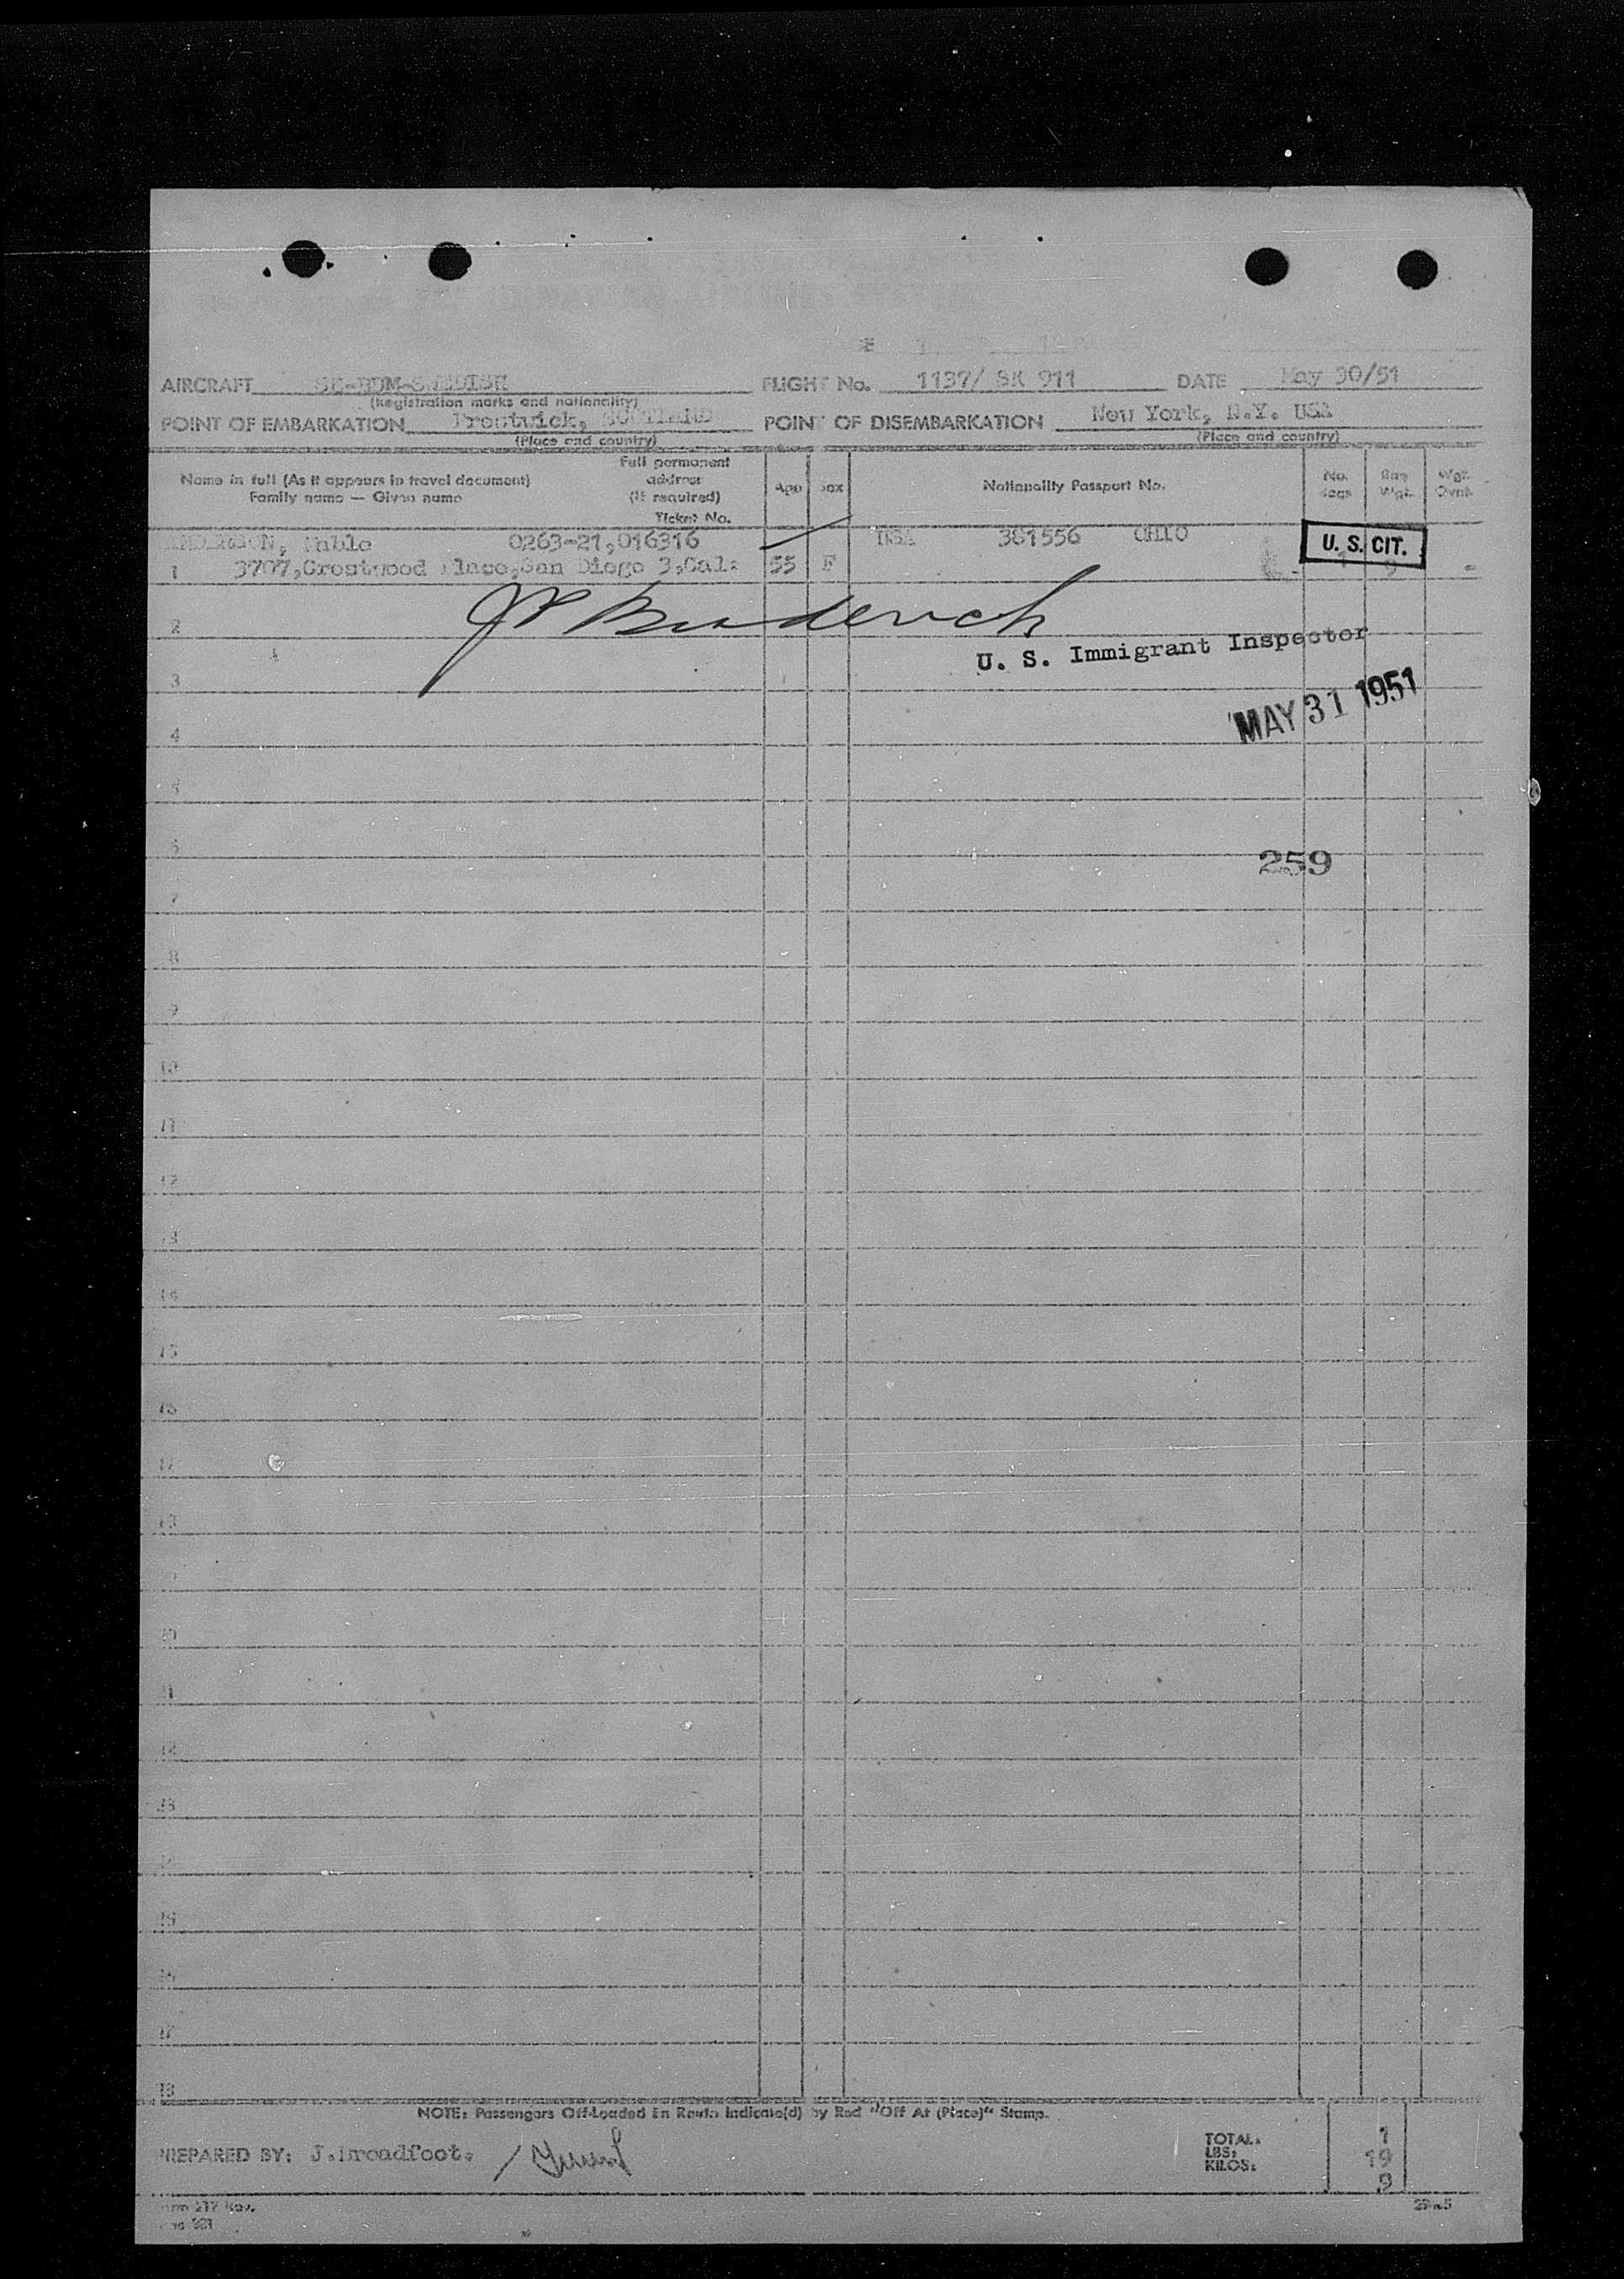 AIRCRAFT SE-BDM-SWEDISH FLIGHT No. 1137/ SK 911 DATE May 30/51
(Registration marks and nationality)
POINT OF EMBARKATION Prestwick, SCOTLAND POINT OF DISEMBARKATION New York, N.Y. USA
(Place and country) (Place and country)
Name in full (As it appears in travel document) Family name — Given name Full permanent address (if required) Ticket No. Age Sex Nationality Passport No. No. Bags Bag Wgt. Wgt. Ovnt.
ANDERSON, Mable 0263-21,016316 USA 381556 OHIO U. S. CIT.
1 3707,Crestwood Place,San Diego 3,Cal: 55 F 1 9 -
2
U. S. Immigrant Inspector
3
MAY 31 1951
4
5
6
259
7
8
9
10
11
12
13
14
15
16
17
18
19
20
21
22
23
24
25
26
27
28
NOTE: Passengers Off-Loaded En Route Indicate(d) by Red "Off At (Place)" Stamp.
PREPARED BY: J.Broadfoot.
TOTAL: 1
LBS: 19
KILOS: 9
Form 217 Rev.